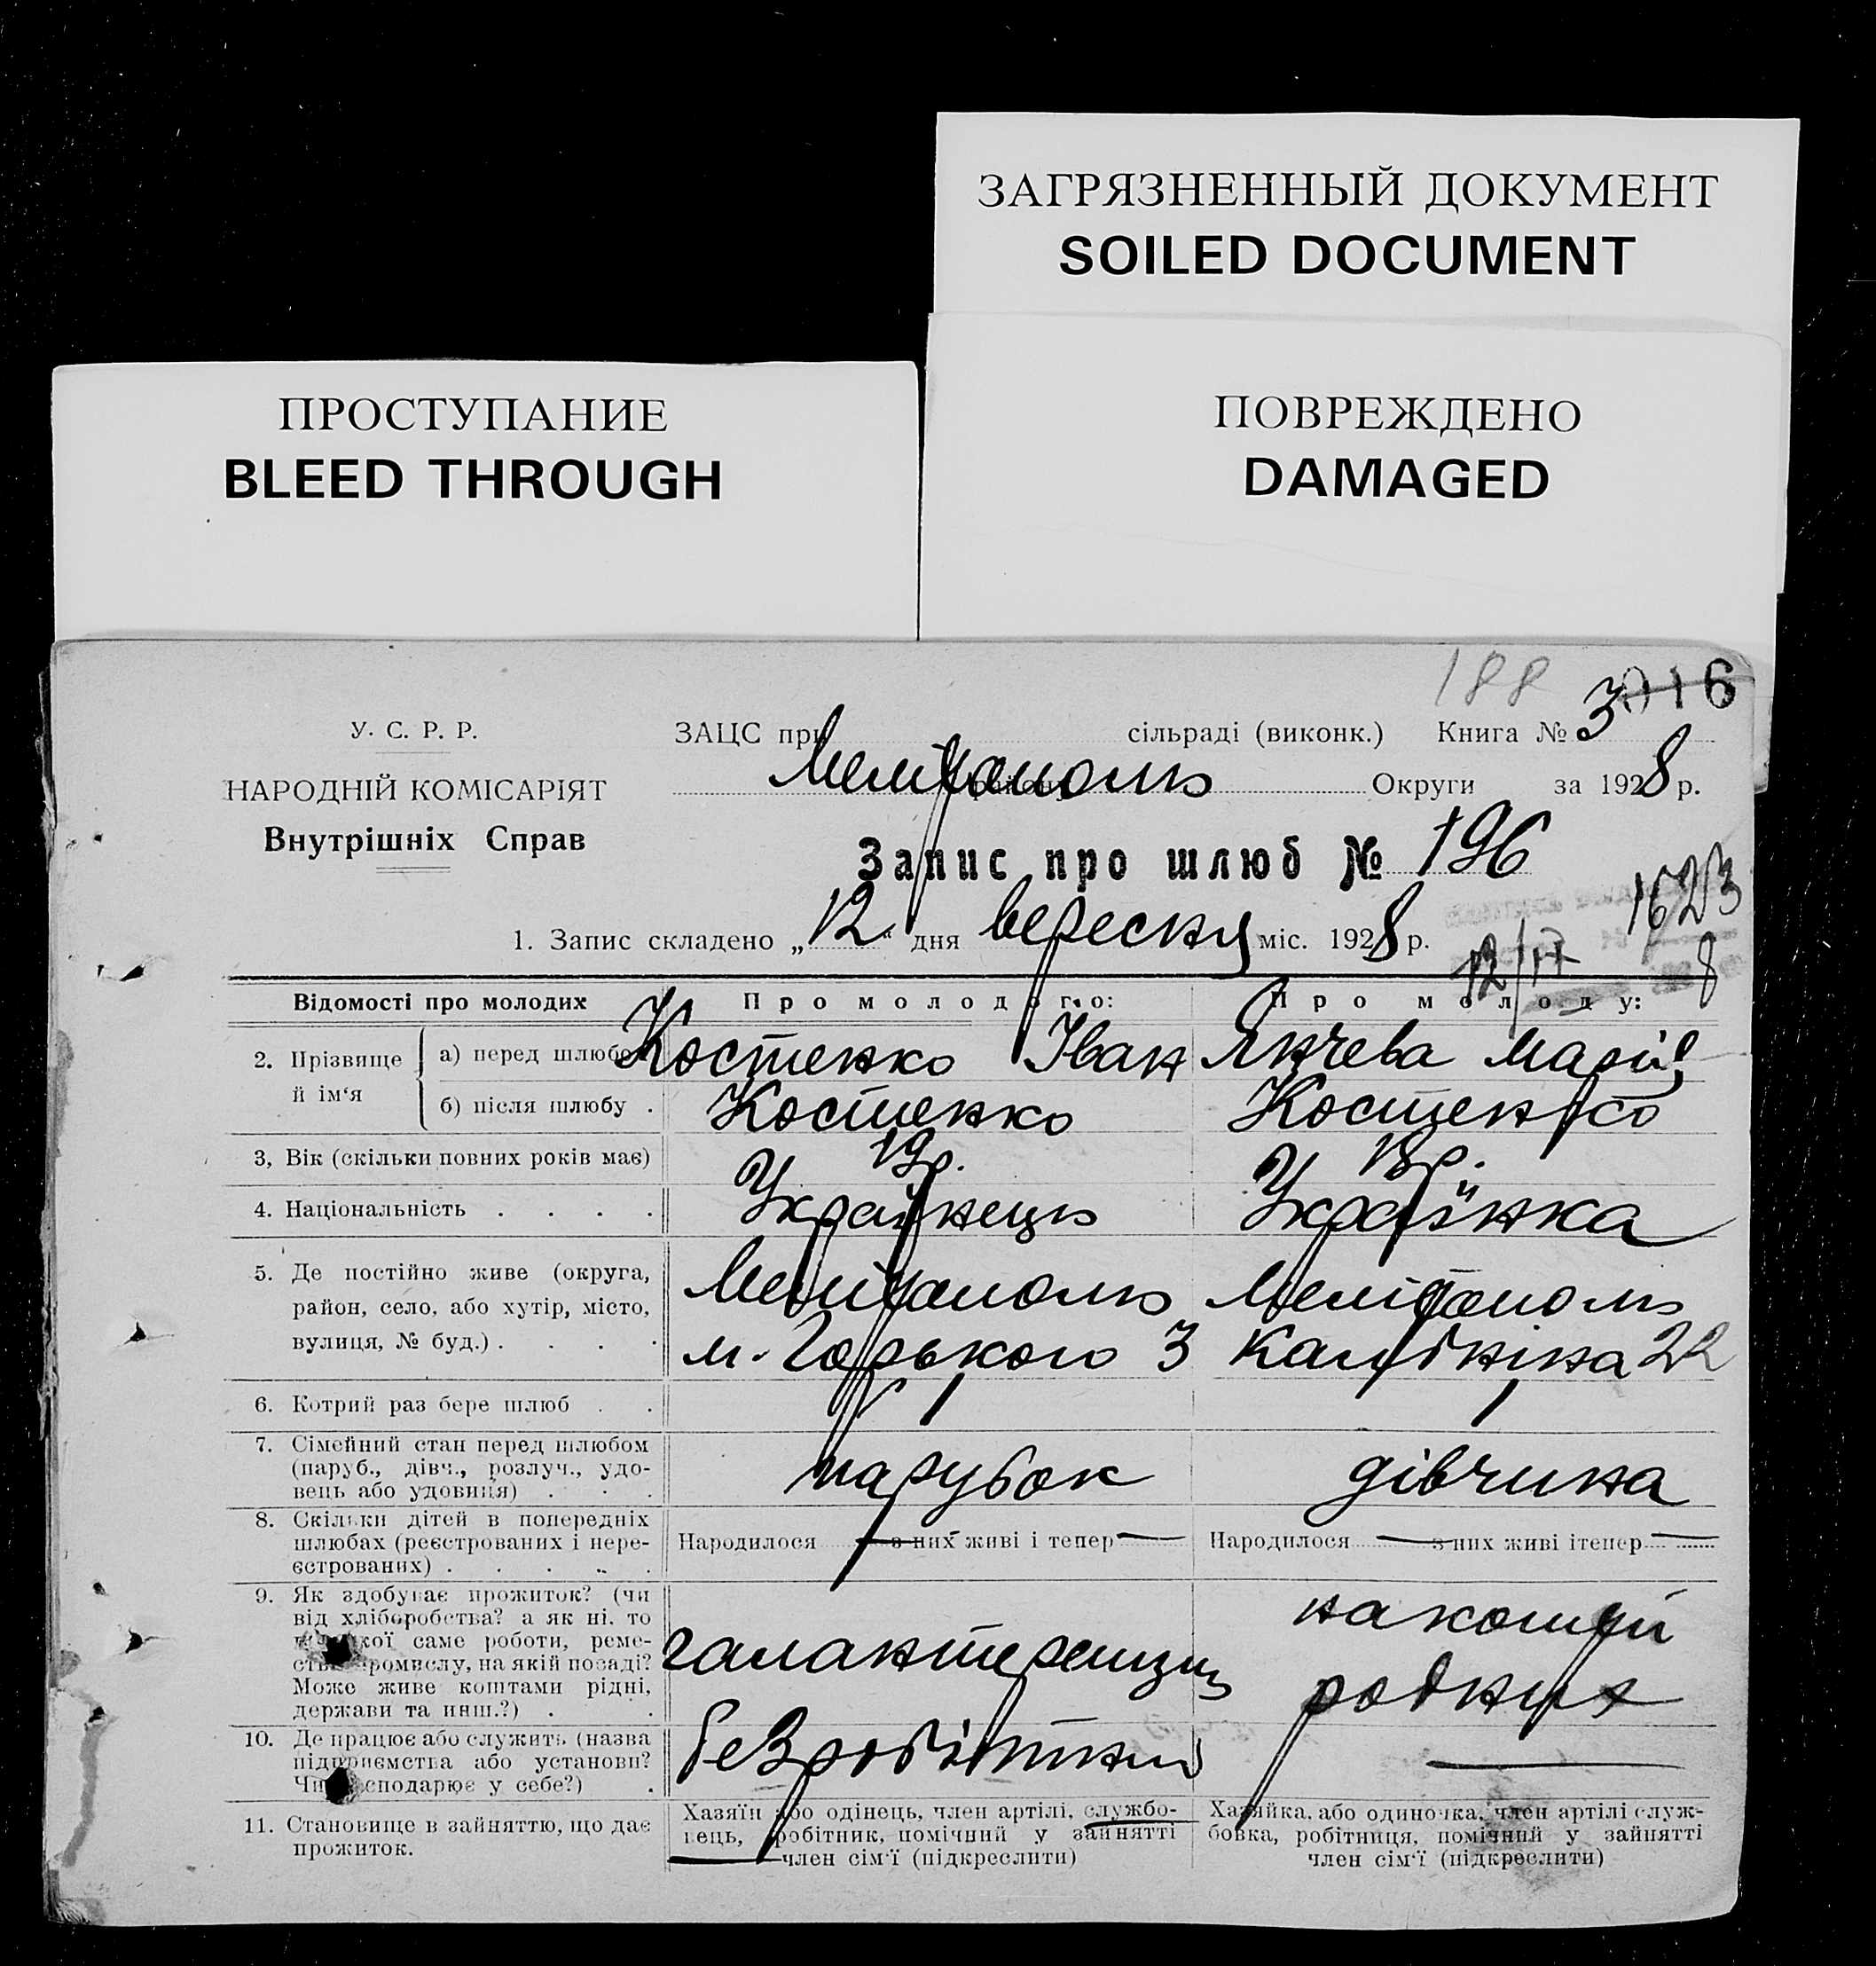 ЗАГРЯЗНЕННЫЙ ДОКУМЕНТ
SOILED DOCUMENT
ПРОСТУПАНИЕ
BLEED THROUGH
ПОВРЕЖДЕНО
DAMAGED
188
3016
У. С. Р. Р.
НАРОДНІЙ КОМІСАРІЯТ
Внутрішніх Справ
ЗАЦС при сільраді (виконк.) Книга № 3
Мелітополь Округи за 1928 р.
Запис про шлюб № 196
1623
8
1. Запис складено „12“ дня вересня міс. 1928 р.
12/IX
Відомості про молодих Про молодого: Про молоду:
2. Прізвище й ім‘я
а) перед шлюбом Костенко Іван Янчева Марія
б) після шлюбу . Костенко Костенко
3, Вік (скільки повних років має) 19 р. 18 р.
4. Національність . . . . Українець Українка
5. Де постійно живе (округа, Мелітополь Мелітополь
район, село, або хутір, місто,
вулиця, № буд.) . . . . м. Горького 3 Калініна 22
6. Котрий раз бере шлюб . . 1 1
7. Сімейний стан перед шлюбом
(паруб., дівч., розлуч., удо-
вець або удовиця) . . . парубок дівчина
8. Скільки дітей в попередніх
шлюбах (реєстрованих і нере-
єстрованих) . . . . .
Народилося — з них живі і тепер —
Народилося — з них живі ітепер —
9. Як здобуває прожиток? (чи
від хліборобства? а як ні, то
кої саме роботи, реме-
ромислу, на якій посаді?
Може живе коштами рідні,
держави та инш.?) . .
галантерещик
на кошти
родних
10. Де працює або служить (назва
підприємства або установи?
сподарює у себе?) .
безробітний —
11. Становище в зайняттю, що дає
прожиток.
Хазяїн або одінець, член артілі, службо-
вець, робітник, помічний у зайнятті
член сім‘ї (підкреслити)
Хазяйка, або одиночка, член артілі служ-
бовка, робітниця, помічний у зайнятті
член сім‘ї (підкреслити)